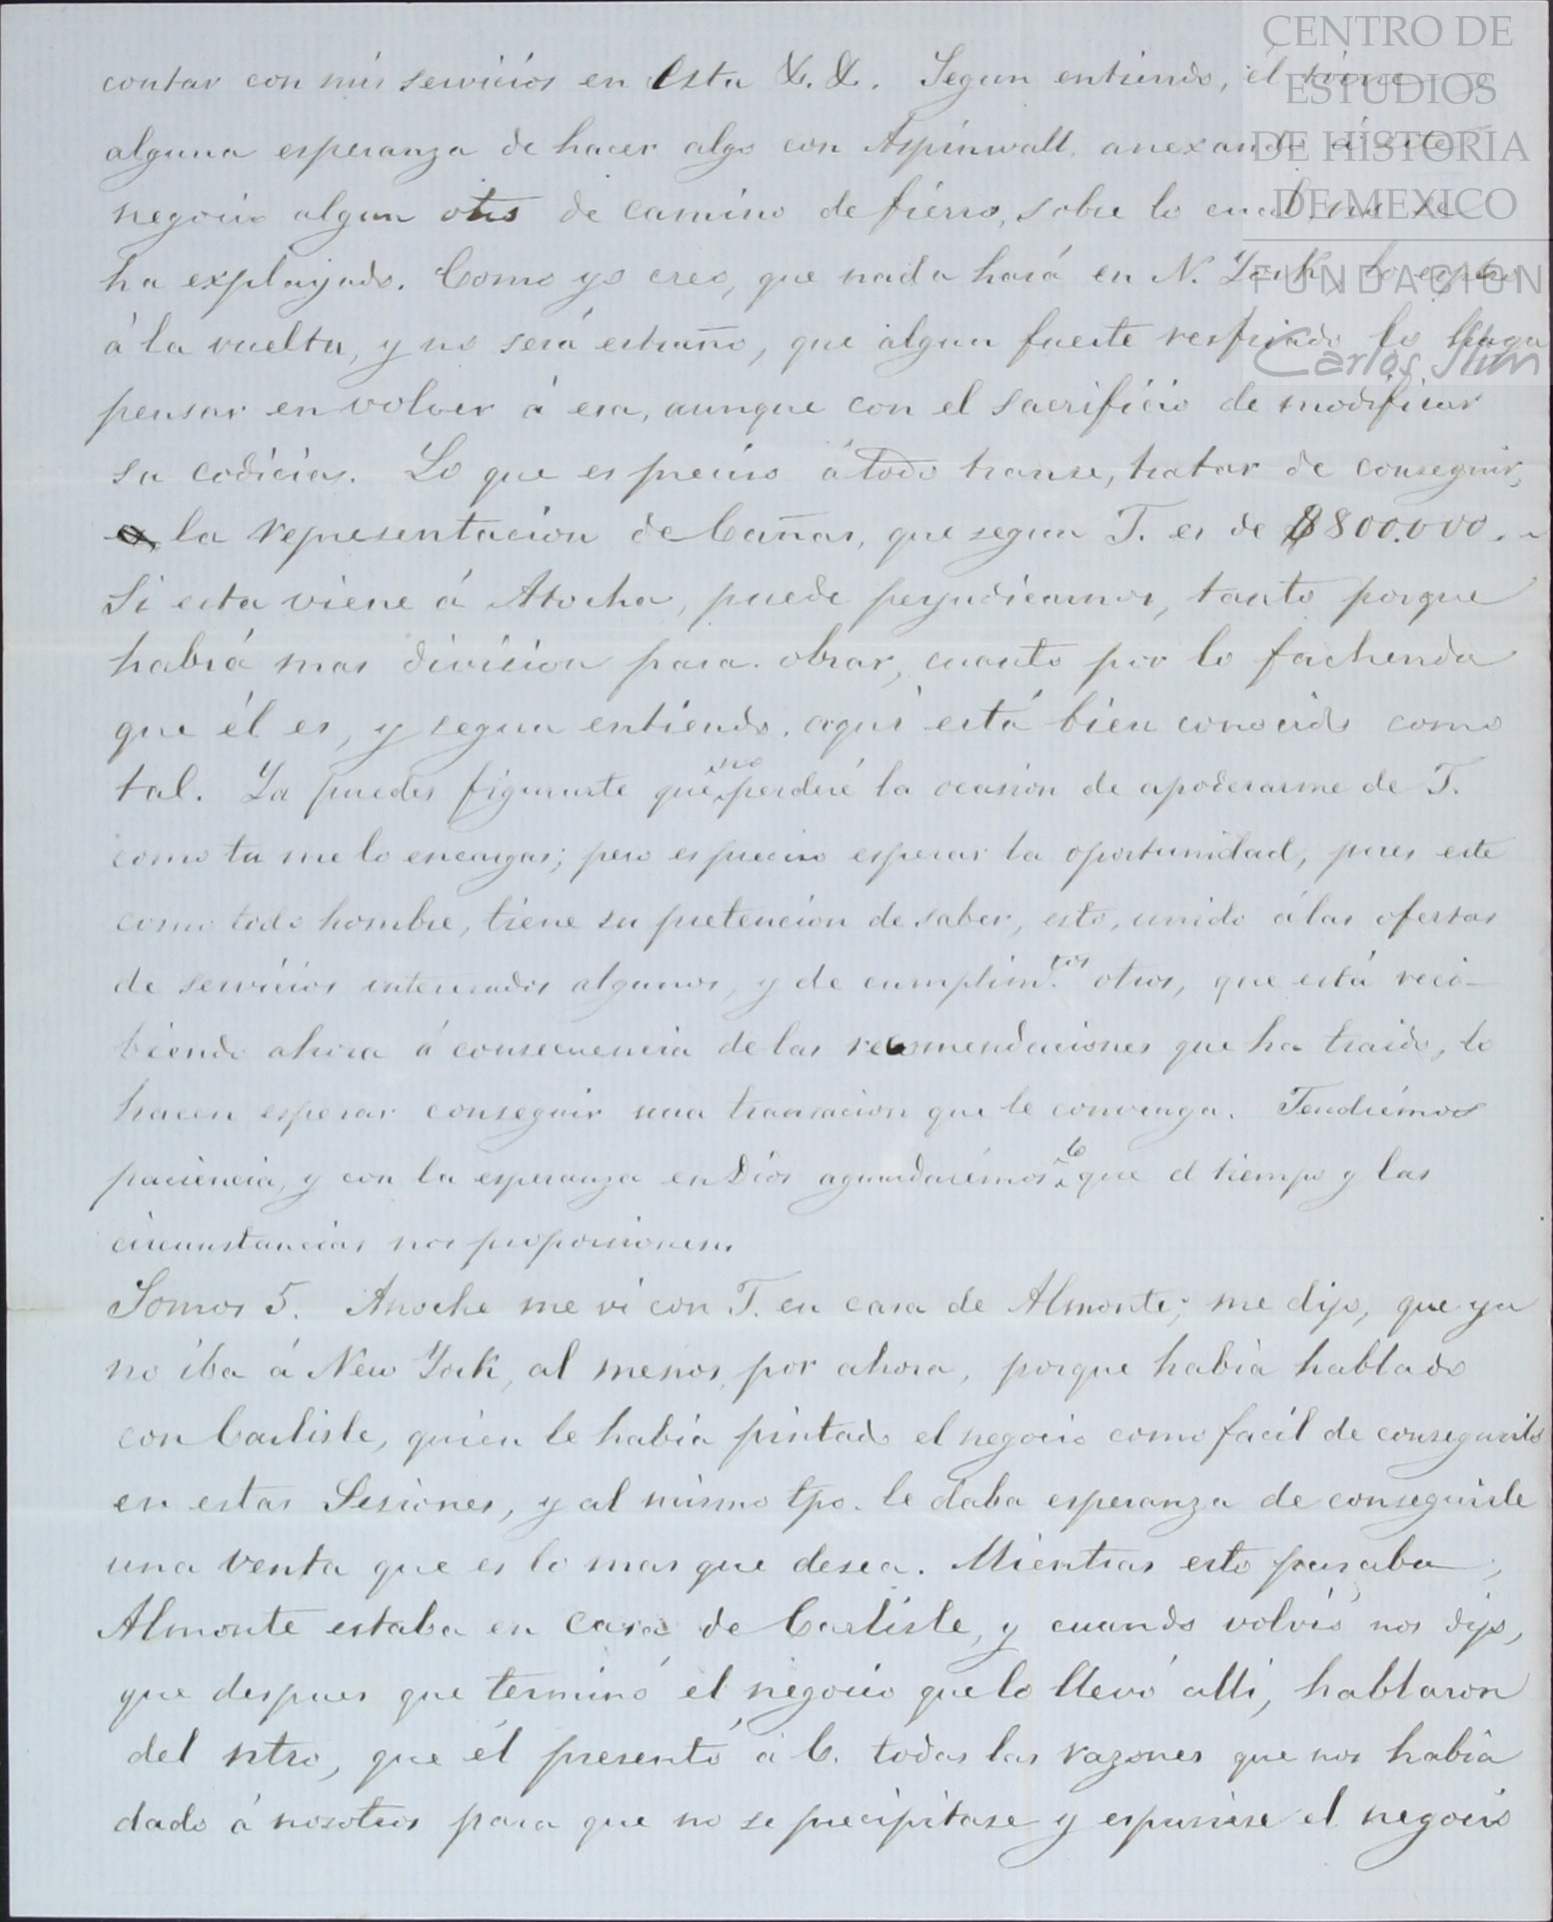 CENTRO DE
ESTUDIOS
DE HISTORIA
DE MEXICO
FUNDACION
Carlos Slim
contar con mis servicios en esta &. &. Segun entiendo, él tiene
alguna esperanza de hacer algo con Aspinwall anexando á este
negocio algun otro de camino de fierro, sobre lo cual no se
ha explayado. Como yo creo, que nada hará en N. York, lo espero
á la vuelta, y no será estraño, que algun fuerte resfriado lo haga
pensar en volver á esa, aunque con el sacrificio de modificar
su codicias. Lo que es preciso á todo transe, tratar de conseguir,
la representacion de Cañas, que segun T. es de $800.000.
Si esta viene á Atocha, puede perjudicarnos, tanto porque
habrá mas division para obrar, cuanto por lo fachenda
que él es, y segun entiendo, aqui está bien conocido como
tal. Ya puedes figurarte que no perderé la ocasion de apoderarme de T.
como tu me lo encargas; pero es preciso esperar la oportunidad, pues este
como todo hombre, tiene su pretencion de saber, esto, unido á las ofertas
de servicios interesados algunos, y de cumplim.tos otros, que está reci-
biendo ahora á consecuencia de las recomendaciones que ha traido, lo
hacen esperar conseguir una transacion que le convenga. Tendrémos
paciencia, y con la esperanza en Dios aguardarémos lo que el tiempo y las
circunstancias nos proporcionen.
Somos 5. Anoche me vi con T. en casa de Almonte; me dijo, que ya
no iba á New York, al menos por ahora, porque habia hablado
con Carlisle, quien le habia pintado el negocio como facil de conseguirlo
en estas Sesiones, y al mismo tpo. le daba esperanza de conseguirle
una venta que es lo mas que desea. Mientras esto pasaba,
Almonte estaba en casa de Carlisle, y cuando volvió nos dijo,
que despues que terminó el negocio que lo llevó alli, hablaron
del ntro, que él presentó á C. todas las razones que nos habia
dado á nosotros para que no se precipitase y espusiese el negocio